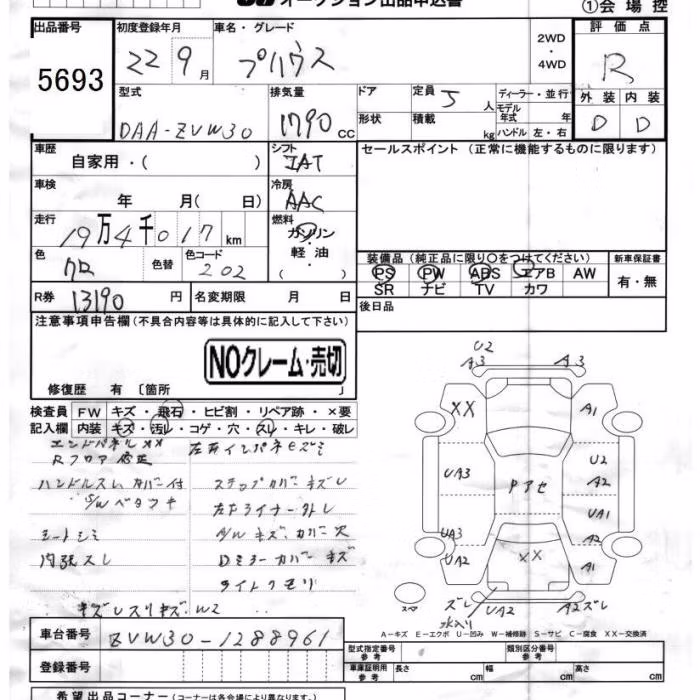 オークション出品申込書
①会場控
出品番号 5693
初度登録年月 22 9月
車名・グレード プリウス
2WD・4WD
評価点 R
型式 DAA-ZVW30
排気量 1790 cc
ドア
定員 5人
ディーラー・並行
モデル年式 年
外装 D
内装 D
形状
積載 kg
ハンドル 左・右
車歴 自家用・( )
シフト IAT
セールスポイント (正常に機能するものに限ります)
車検 年 月( 日)
冷房 AAC
走行 19万4千017km
燃料 ガソリン・軽油・( )
色 クロ
色替
色コード 202
装備品 (純正品に限り○をつけてください)
新車保証書
PS PW ABS エアB AW
有・無
SR ナビ TV カワ
R券 13190円
名変期限 月 日
後日品
注意事項申告欄(不具合内容等は具体的に記入して下さい)
NOクレーム・売切
修復歴 有〔箇所 〕
検査員記入欄
FW キズ・飛石・ヒビ割・リペア跡・×要
内装 キズ・汚レ・コゲ・穴・スレ・キレ・破レ
エンドパネルXX
左右インパネキズミ
Rフロア修正
ハンドルスレ カバー付
ステップカバーキズレ
S/Wベタツキ
左Fライナー外レ
シートシミ
A/Wキズ、カバー欠
内張スレ
Dミラーカバーキズ
ライトクモリ
キズレスリキズ、W2
U2
A3 A3
XX A1
U2
UA3 A2
Pアセ
UA1
UA3 A2
UA2 XX A1
スペア
ズレ UA2 A2ズレ
水入り
A-キズ E-エクボ U-凹み W-補修跡 S-サビ C-腐食 XX-交換済
車台番号 ZVW30-1288961
型式指定番号 参考
類別区分番号 参考
登録番号
車庫証明用参考 長さ cm 幅 cm 高さ cm
希望出品コーナー(コーナーは各会場により異なります。)